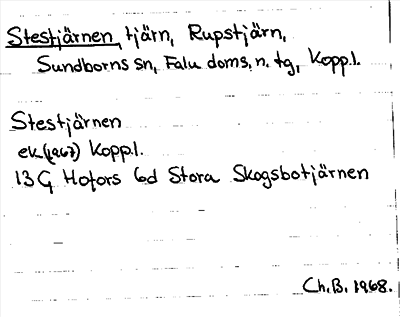 Stestjärnen, tjärn, Rupstjärn,
Sundborns sn, Falu doms. n. tg, Kopp.l.
Stestjärnen
ek (1967) Kopp.l.
13G Hofors 6d Stora Skogsbotjärnen
Ch.B. 1968.